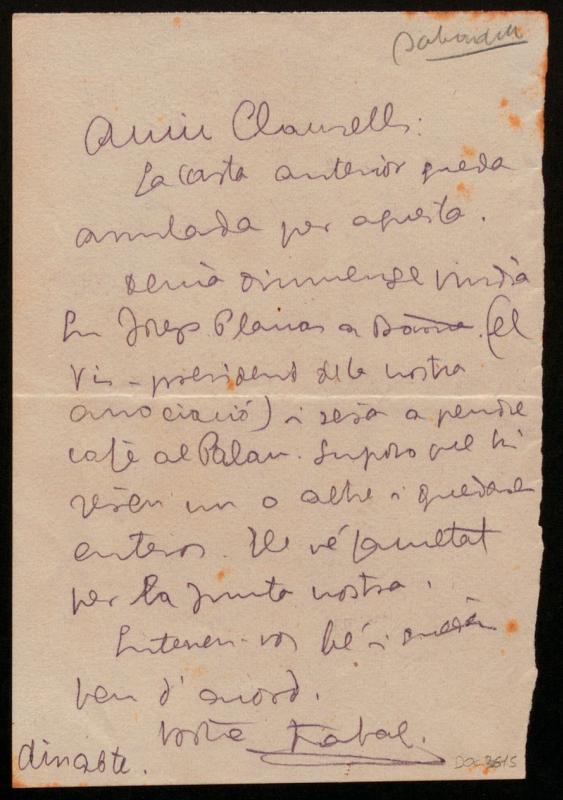 Sabadell
Amic Clausells:
La carta anterior queda
anulada per aquesta.
Demà diumenge vindrà
En Josep Planas a Barna (el
vis-president de la nostra
associació) i serà a pendre
cafè al Palau. Suposo que hi
sereu un o altre i quedareu
enteros. Ell vé facultat
per la Junta nostra.
Entenen-vos bé i aneu
ben d'acord.
Vostre Trabal.
dissabte.
DOC 3615